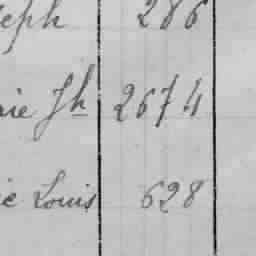 seph 286
rie Jh 2674
ie Louis 628